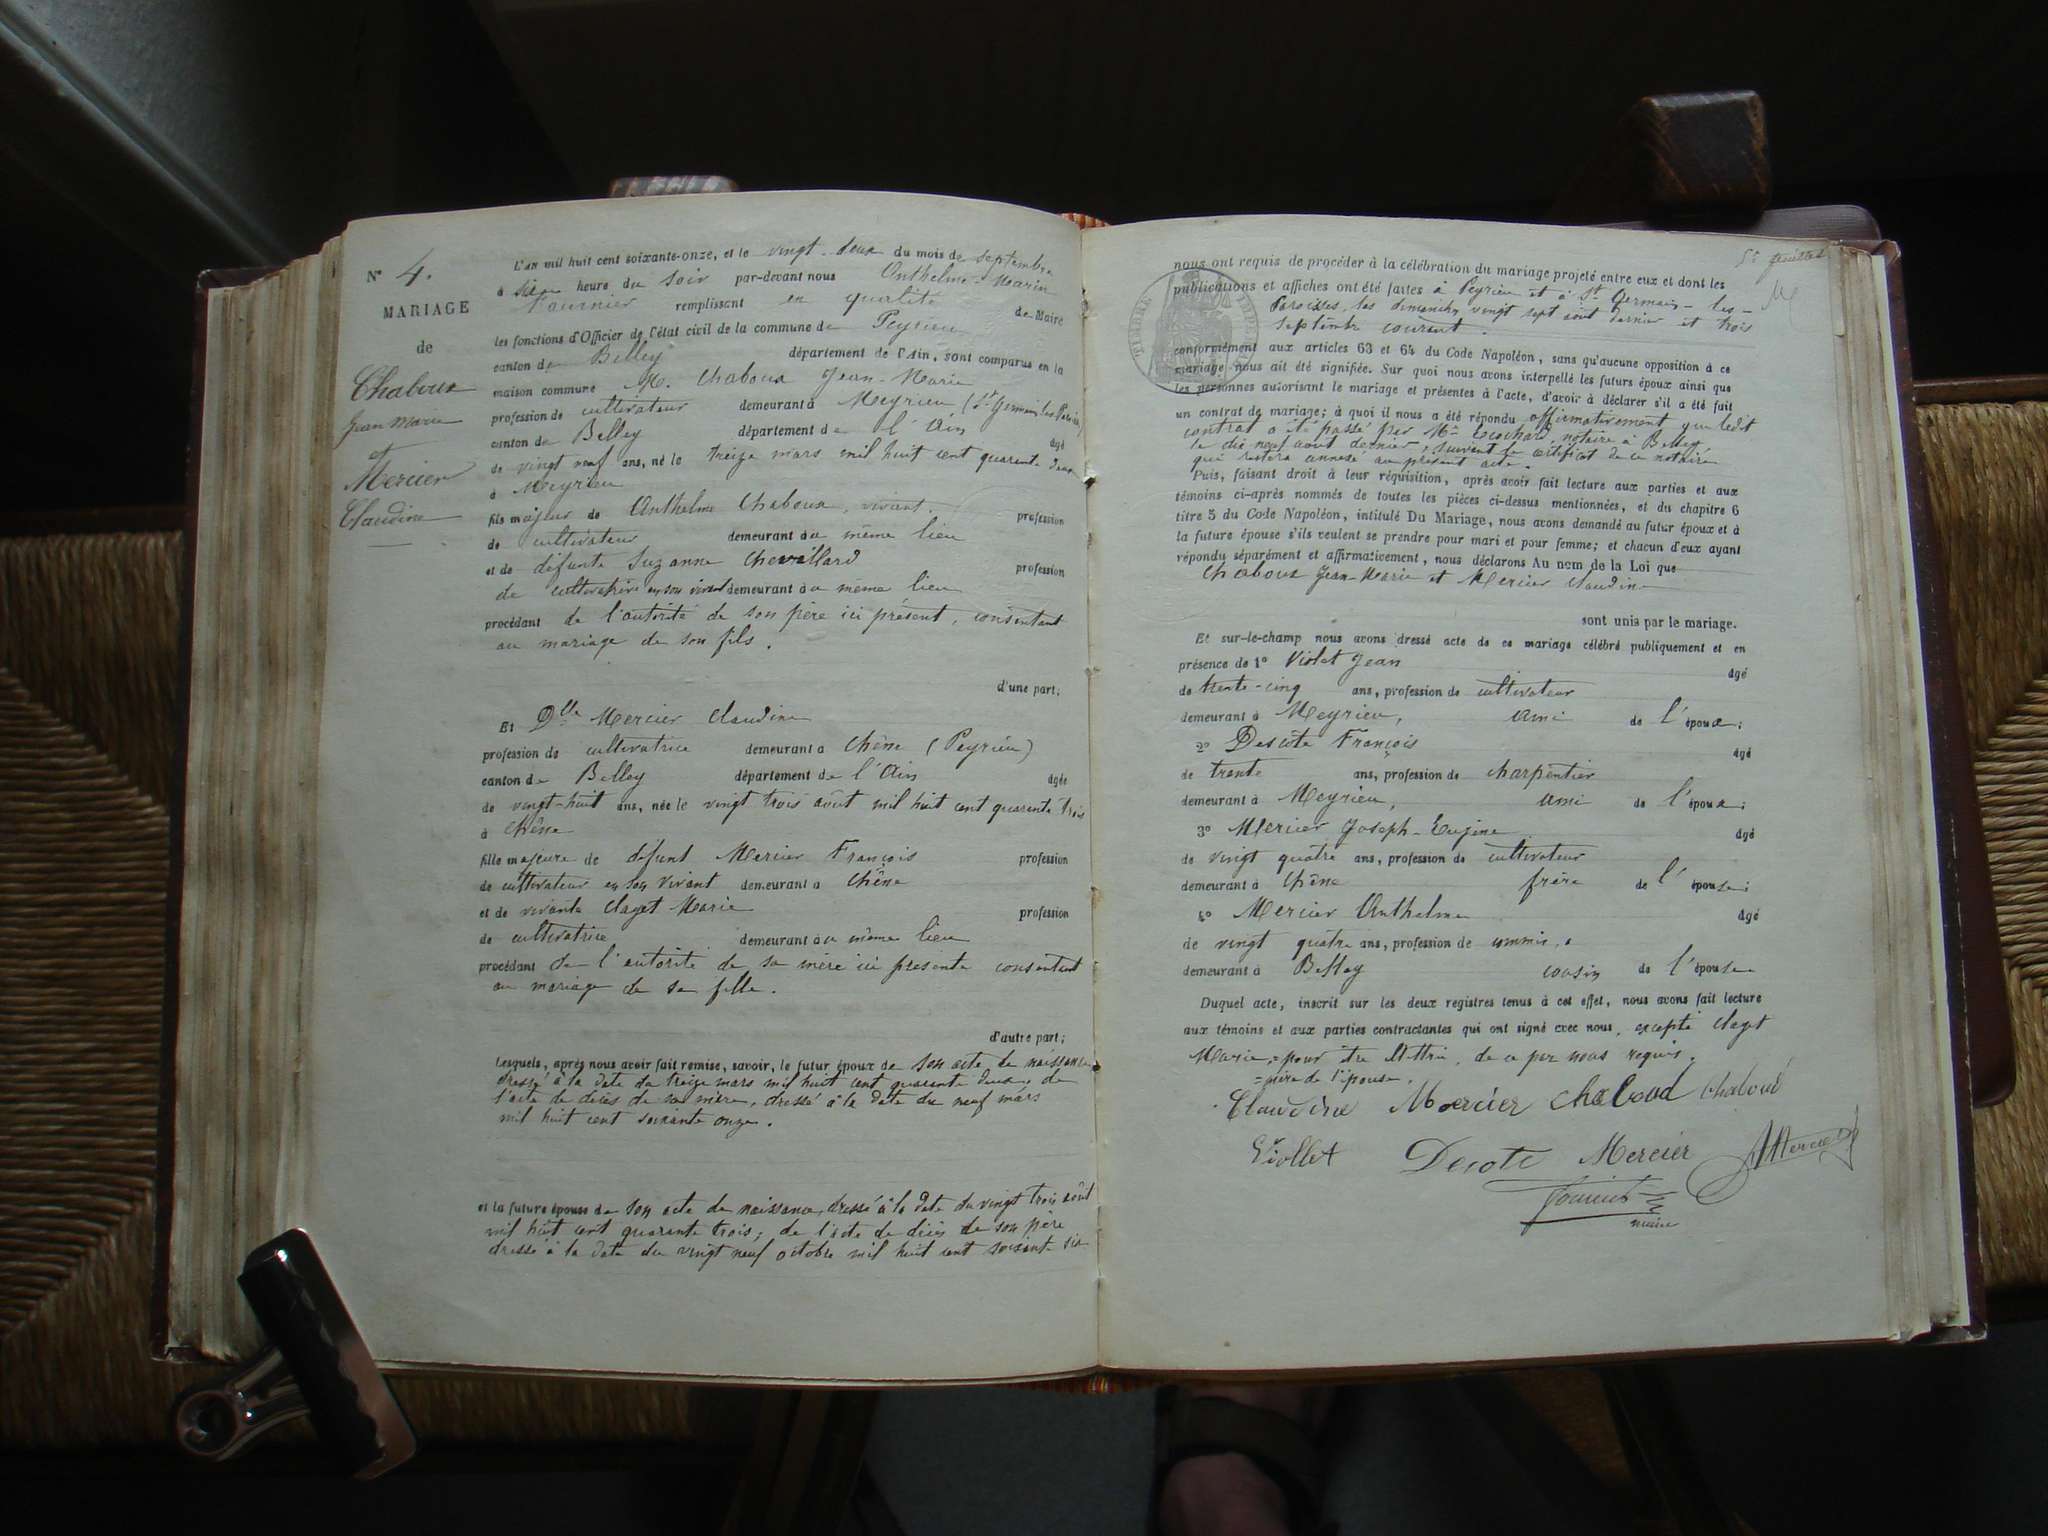 N° 4.
MARIAGE
de
Chaboux
Jean Marie
et
Mercier
Claudine
L'an mil huit cent soixante-onze, et le vingt-deux du mois de septembre
à six heure du soir par-devant nous Anthelme-Marin
Fournier remplissant en qualité de Maire
les fonctions d'Officier de l'état civil de la commune de Peyrieu
canton de Belley département de l'Ain, sont comparus en la
maison commune M. Chaboux Jean-Marie
profession de cultivateur demeurant à Meyrieu (St Germain les Parois.)
canton de Belley département de l'Ain âgé
de vingt neuf ans, né le treize mars mil huit cent quarante deux
à Meyrieu
fils majeur de Anthelme Chaboux, vivant. profession
de cultivateur demeurant à u même lieu
et de défunte Suzanne Chevillard profession
de cultivatrice en son vivant demeurant à u même lieu
procédant de l'autorité de son père ici présent, consentant
au mariage de son fils.
d'une part;
Et Dlle Mercier Claudine
profession de cultivatrice demeurant à Chêne (Peyrieu)
canton de Belley département de l'Ain âgée
de vingt-huit ans, née le vingt trois août mil huit cent quarante trois
à Chêne
fille majeure de défunt Mercier François profession
de cultivateur en son vivant demeurant à Chêne
et de vivante Claget Marie profession
de cultivatrice demeurant à u même lieu
procédant de l'autorité de sa mère ici présente consentant
au mariage de sa fille.
d'autre part;
Lesquels, après nous avoir fait remise, savoir, le futur époux de son acte de naissance
dressé à la date du treize mars mil huit cent quarante deux, de
l'acte de décès de sa mère, dressé à la date du neuf mars
mil huit cent soixante onze.
et la future épouse de son acte de naissance, dressé à la date du vingt trois août
mil huit cent quarante trois; de l'acte de décès de son père
dressé à la date du vingt neuf octobre mil huit cent soixante six
nous ont requis de procéder à la célébration du mariage projeté entre eux et dont les
publications et affiches ont été faites à Peyrieu et à St Germain-les-
Paroisses, les dimanches vingt sept août dernier et trois
septembre courant.
conformément aux articles 63 et 64 du Code Napoléon, sans qu'aucune opposition à ce
mariage nous ait été signifiée. Sur quoi nous avons interpellé les futurs époux ainsi que
les personnes autorisant le mariage et présentes à l'acte, d'avoir à déclarer s'il a été fait
un contrat de mariage; à quoi il nous a été répondu affirmativement que ledit
contrat a été passé par Me notaire à Belley
le dix neuf août dernier, suivant le certificat de ce notaire
qui restera annexé au présent acte.
Puis, faisant droit à leur réquisition, après avoir fait lecture aux parties et aux
témoins ci-après nommés de toutes les pièces ci-dessus mentionnées, et du chapitre 6
titre 5 du Code Napoléon, intitulé Du Mariage, nous avons demandé au futur époux et à
la future épouse s'ils veulent se prendre pour mari et pour femme; et chacun d'eux ayant
répondu séparément et affirmativement, nous déclarons Au nom de la Loi que
Chaboux Jean-Marie et Mercier Claudine
sont unis par le mariage.
Et sur-le-champ nous avons dressé acte de ce mariage célébré publiquement et en
présence de 1° Violet Jean âgé
de trente-cinq ans, profession de cultivateur
demeurant à Meyrieu, ami de l'époux;
2° Descôte François âgé
de trente ans, profession de charpentier
demeurant à Meyrieu, ami de l'époux;
3° Mercier Joseph-Eugène âgé
de vingt quatre ans, profession de cultivateur
demeurant à Chêne frère de l'épouse;
4° Mercier Anthelme âgé
de vingt quatre ans, profession de commis,
demeurant à Belley cousin de l'épouse.
Duquel acte, inscrit sur les deux registres tenus à cet effet, nous avons fait lecture
aux témoins et aux parties contractantes qui ont signé avec nous, excepté Claget
Marie, = pour être illettrée, de ce par nous requis.
= mère de l'épouse.
Claudine Mercier Chaboud Chaboud
Viollet Decote Mercier AMercier
Fournier
maire